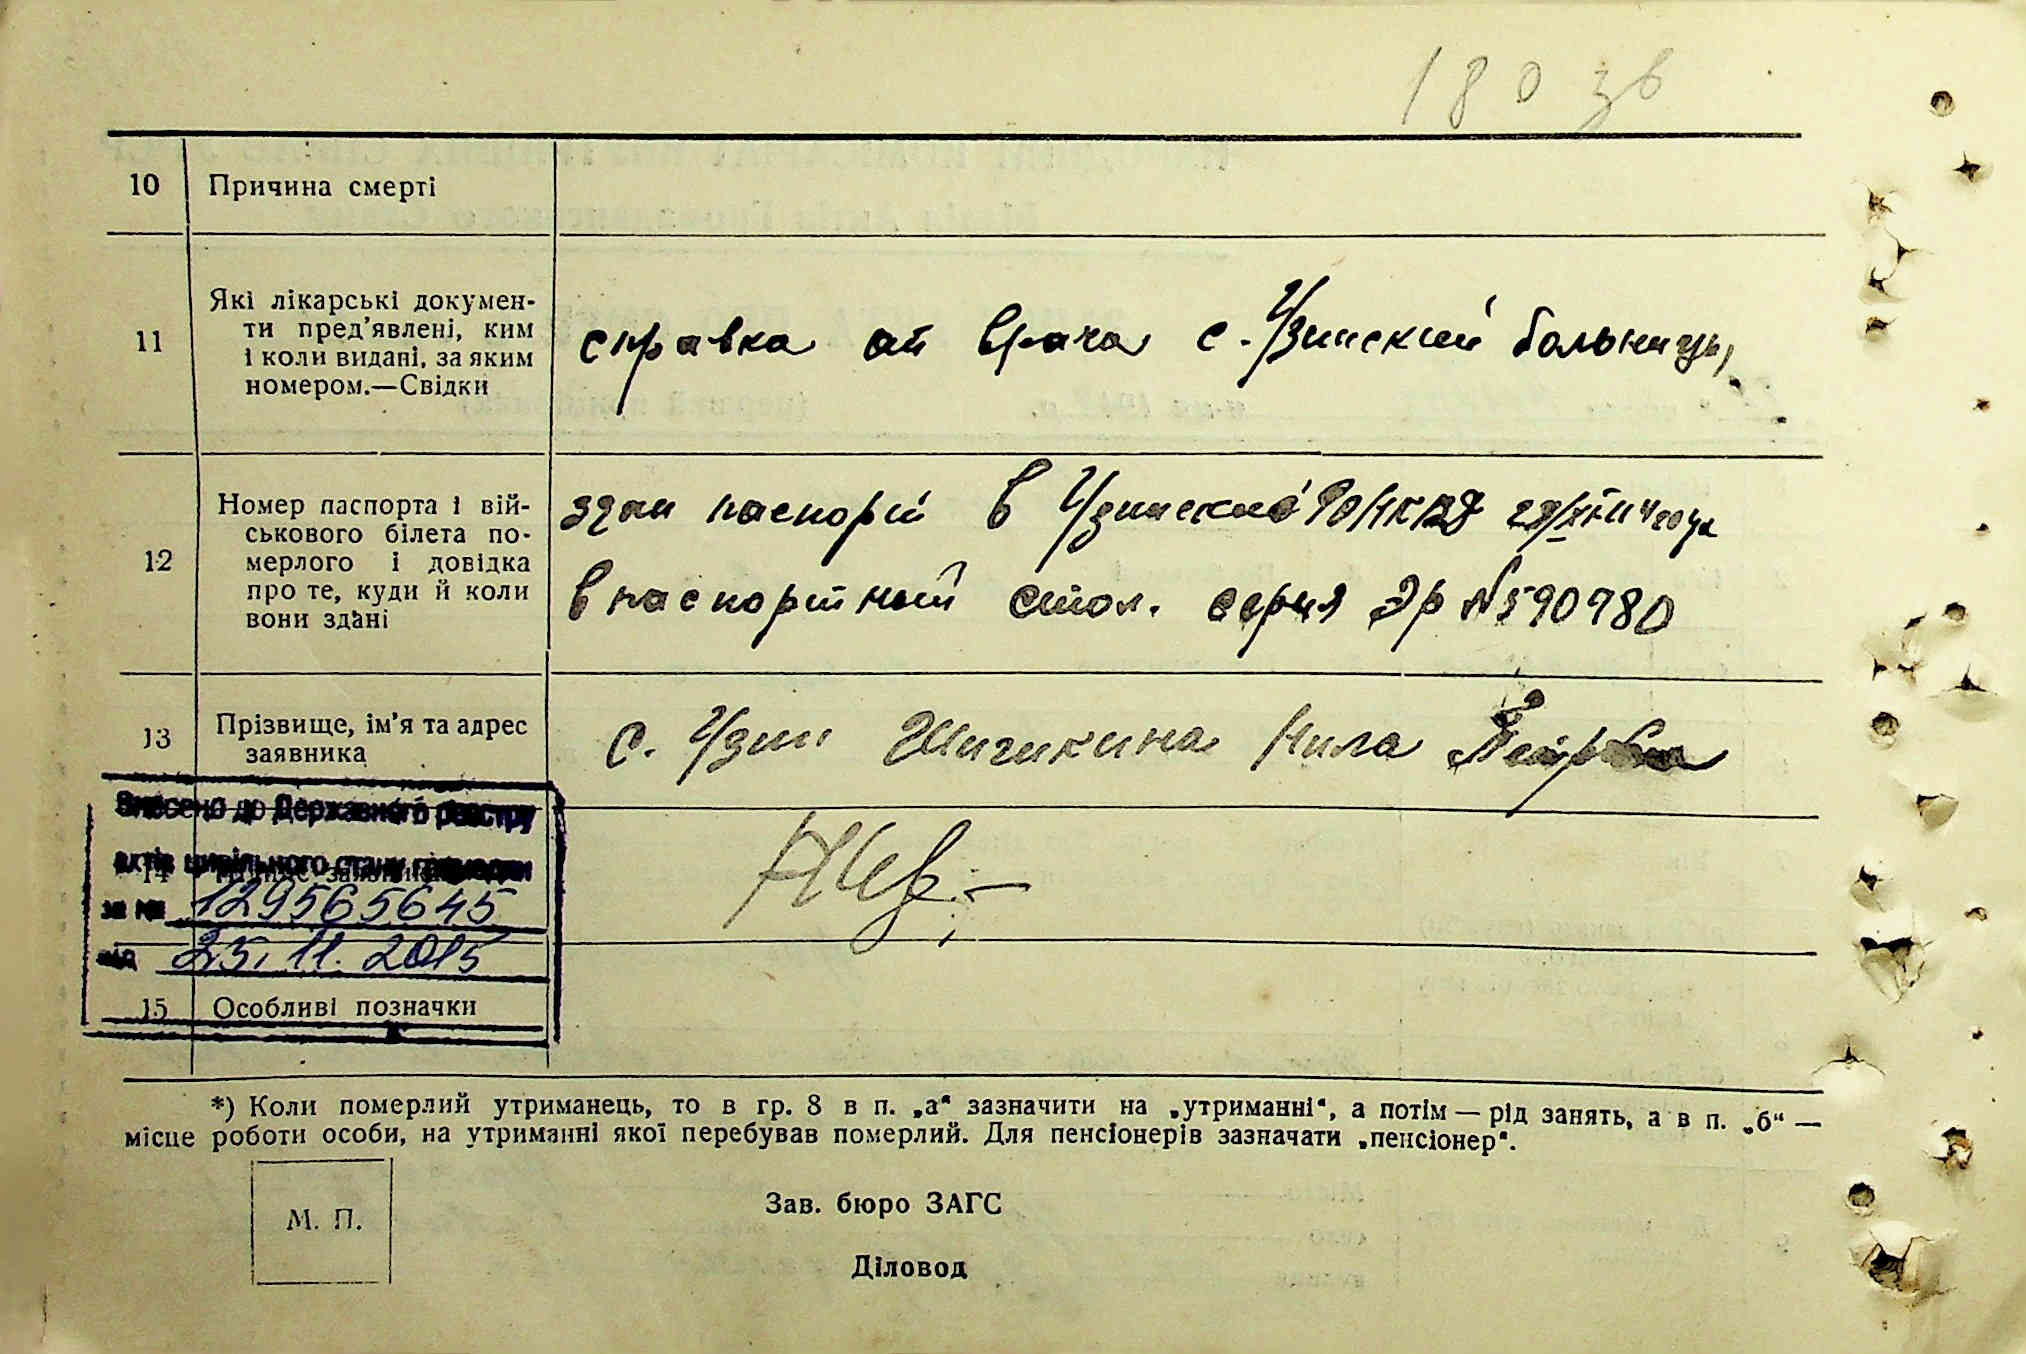 180 зв
10 Причина смерті
11 Які лікарські докумен-
ти пред'явлені, ким
і коли видані, за яким
номером.—Свідки
справка от врача с. Узинский больницы
12 Номер паспорта і вій-
ськового білета по-
мерлого і довідка
про те, куди й коли
вони здані
здан паспорт в Узинский РО НКВД
в паспортный стол. серия Эр №590780
13 Прізвище, ім'я та адрес
заявника
с. Узин Шигикина Нила
Внесено до Державного реєстру
актів цивільного стану громадян
14
за № 1295656 45
від 25.11.2015
15 Особливі позначки
*) Коли померлий утриманець, то в гр. 8 в п. „а“ зазначити на „утриманні“, а потім — рід занять, а в п. „б“ —
місце роботи особи, на утриманні якої перебував померлий. Для пенсіонерів зазначати „пенсіонер“.
М. П.
Зав. бюро ЗАГС
Діловод